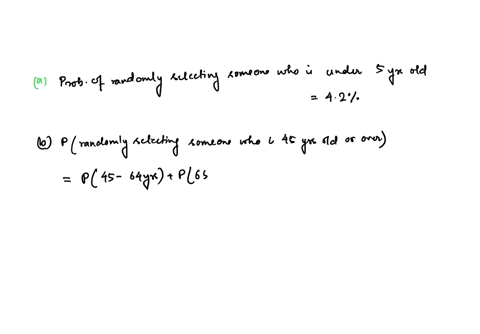 (a) Prob. of randomly selecting someone who is under 5 yr old
= 4.2%
(b) P(randomly selecting someone who is 45 yrs old or over)
= P(45-64yrs) + P(65